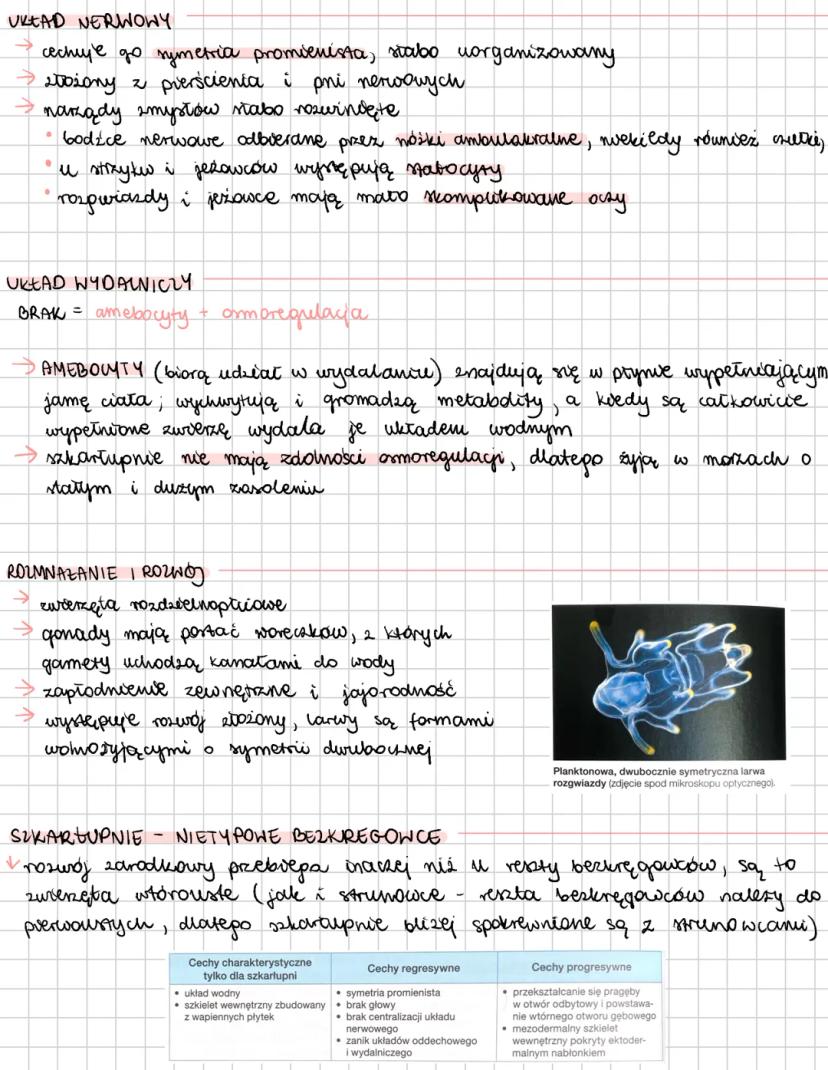 UKŁAD NERWOWY
→ cechuje go symetria promienista, słabo uorganizowany
→ złożony z pierścienia i pni nerwowych
→ narządy zmysłów słabo rozwinięte
• bodźce nerwowe odbierane przez nóżki ambulakralne, niekiedy również czułki,
• u strzykw i jeżowców występują statocysty
• rozgwiazdy i jeżowce mają mało skomplikowane oczy
UKŁAD WYDALNICZY
BRAK = amebocyty + osmoregulacja
→ AMEBOCYTY (biorą udział w wydalaniu) znajdują się w płynie wypełniającym
jamę ciała; wychwytują i gromadzą metabolity, a kiedy są całkowicie
wypełnione zwierzę wydala je układem wodnym
→ szkarłupnie nie mają zdolności osmoregulacji, dlatego żyją w morzach o
stałym i dużym zasoleniu
ROZMNAŻANIE I ROZWÓJ
→ zwierzęta rozdzielnopłciowe
→ gonady mają postać woreczków, z których
gamety uchodzą kanałami do wody
→ zapłodnienie zewnętrzne i jajorodność
→ występuje rozwój złożony, larwy są formami
wolnożyjącymi o symetrii dwubocznej
Planktonowa, dwubocznie symetryczna larwa
rozgwiazdy (zdjęcie spod mikroskopu optycznego).
SZKARŁUPNIE - NIETYPOWE BEZKRĘGOWCE
↓ rozwój zarodkowy przebiega inaczej niż u reszty bezkręgowców, są to
zwierzęta wtórouste (jak i strunowce - reszta bezkręgowców należy do
pierwoustych, dlatego szkarłupnie bliżej spokrewnione są z strunowcami)
Cechy charakterystyczne
tylko dla szkarłupni
• układ wodny
• szkielet wewnętrzny zbudowany
z wapiennych płytek
Cechy regresywne
• symetria promienista
• brak głowy
• brak centralizacji układu
nerwowego
• zanik układów oddechowego
i wydalniczego
Cechy progresywne
• przekształcanie się pragęby
w otwór odbytowy i powstawa-
nie wtórnego otworu gębowego
• mezodermalny szkielet
wewnętrzny pokryty ektoder-
malnym nabłonkiem